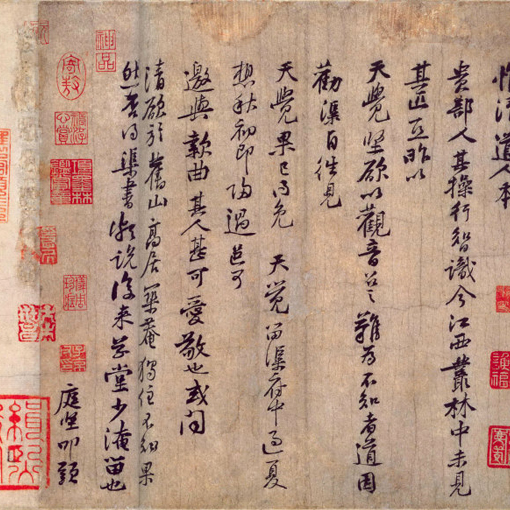 惟清道人本
貴部人其操行智識今江西叢林中未見
其匹亙昨以
天覺堅欲以觀音召之難為不知者道因
勸渠自往見
天覺果已得免天覺留渠府中過夏
想秋初即歸過邑可
邀與款曲其人甚可愛敬也或問
清欲於舊山高居築庵獨住不知果
然否得渠書頗說後來草堂少淹留也
庭堅叩頭
神品